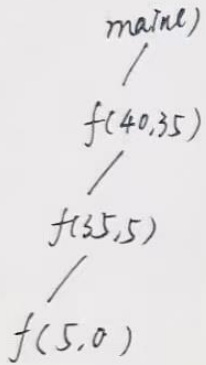 main()
f(40,35)
f(35,5)
f(5,0)